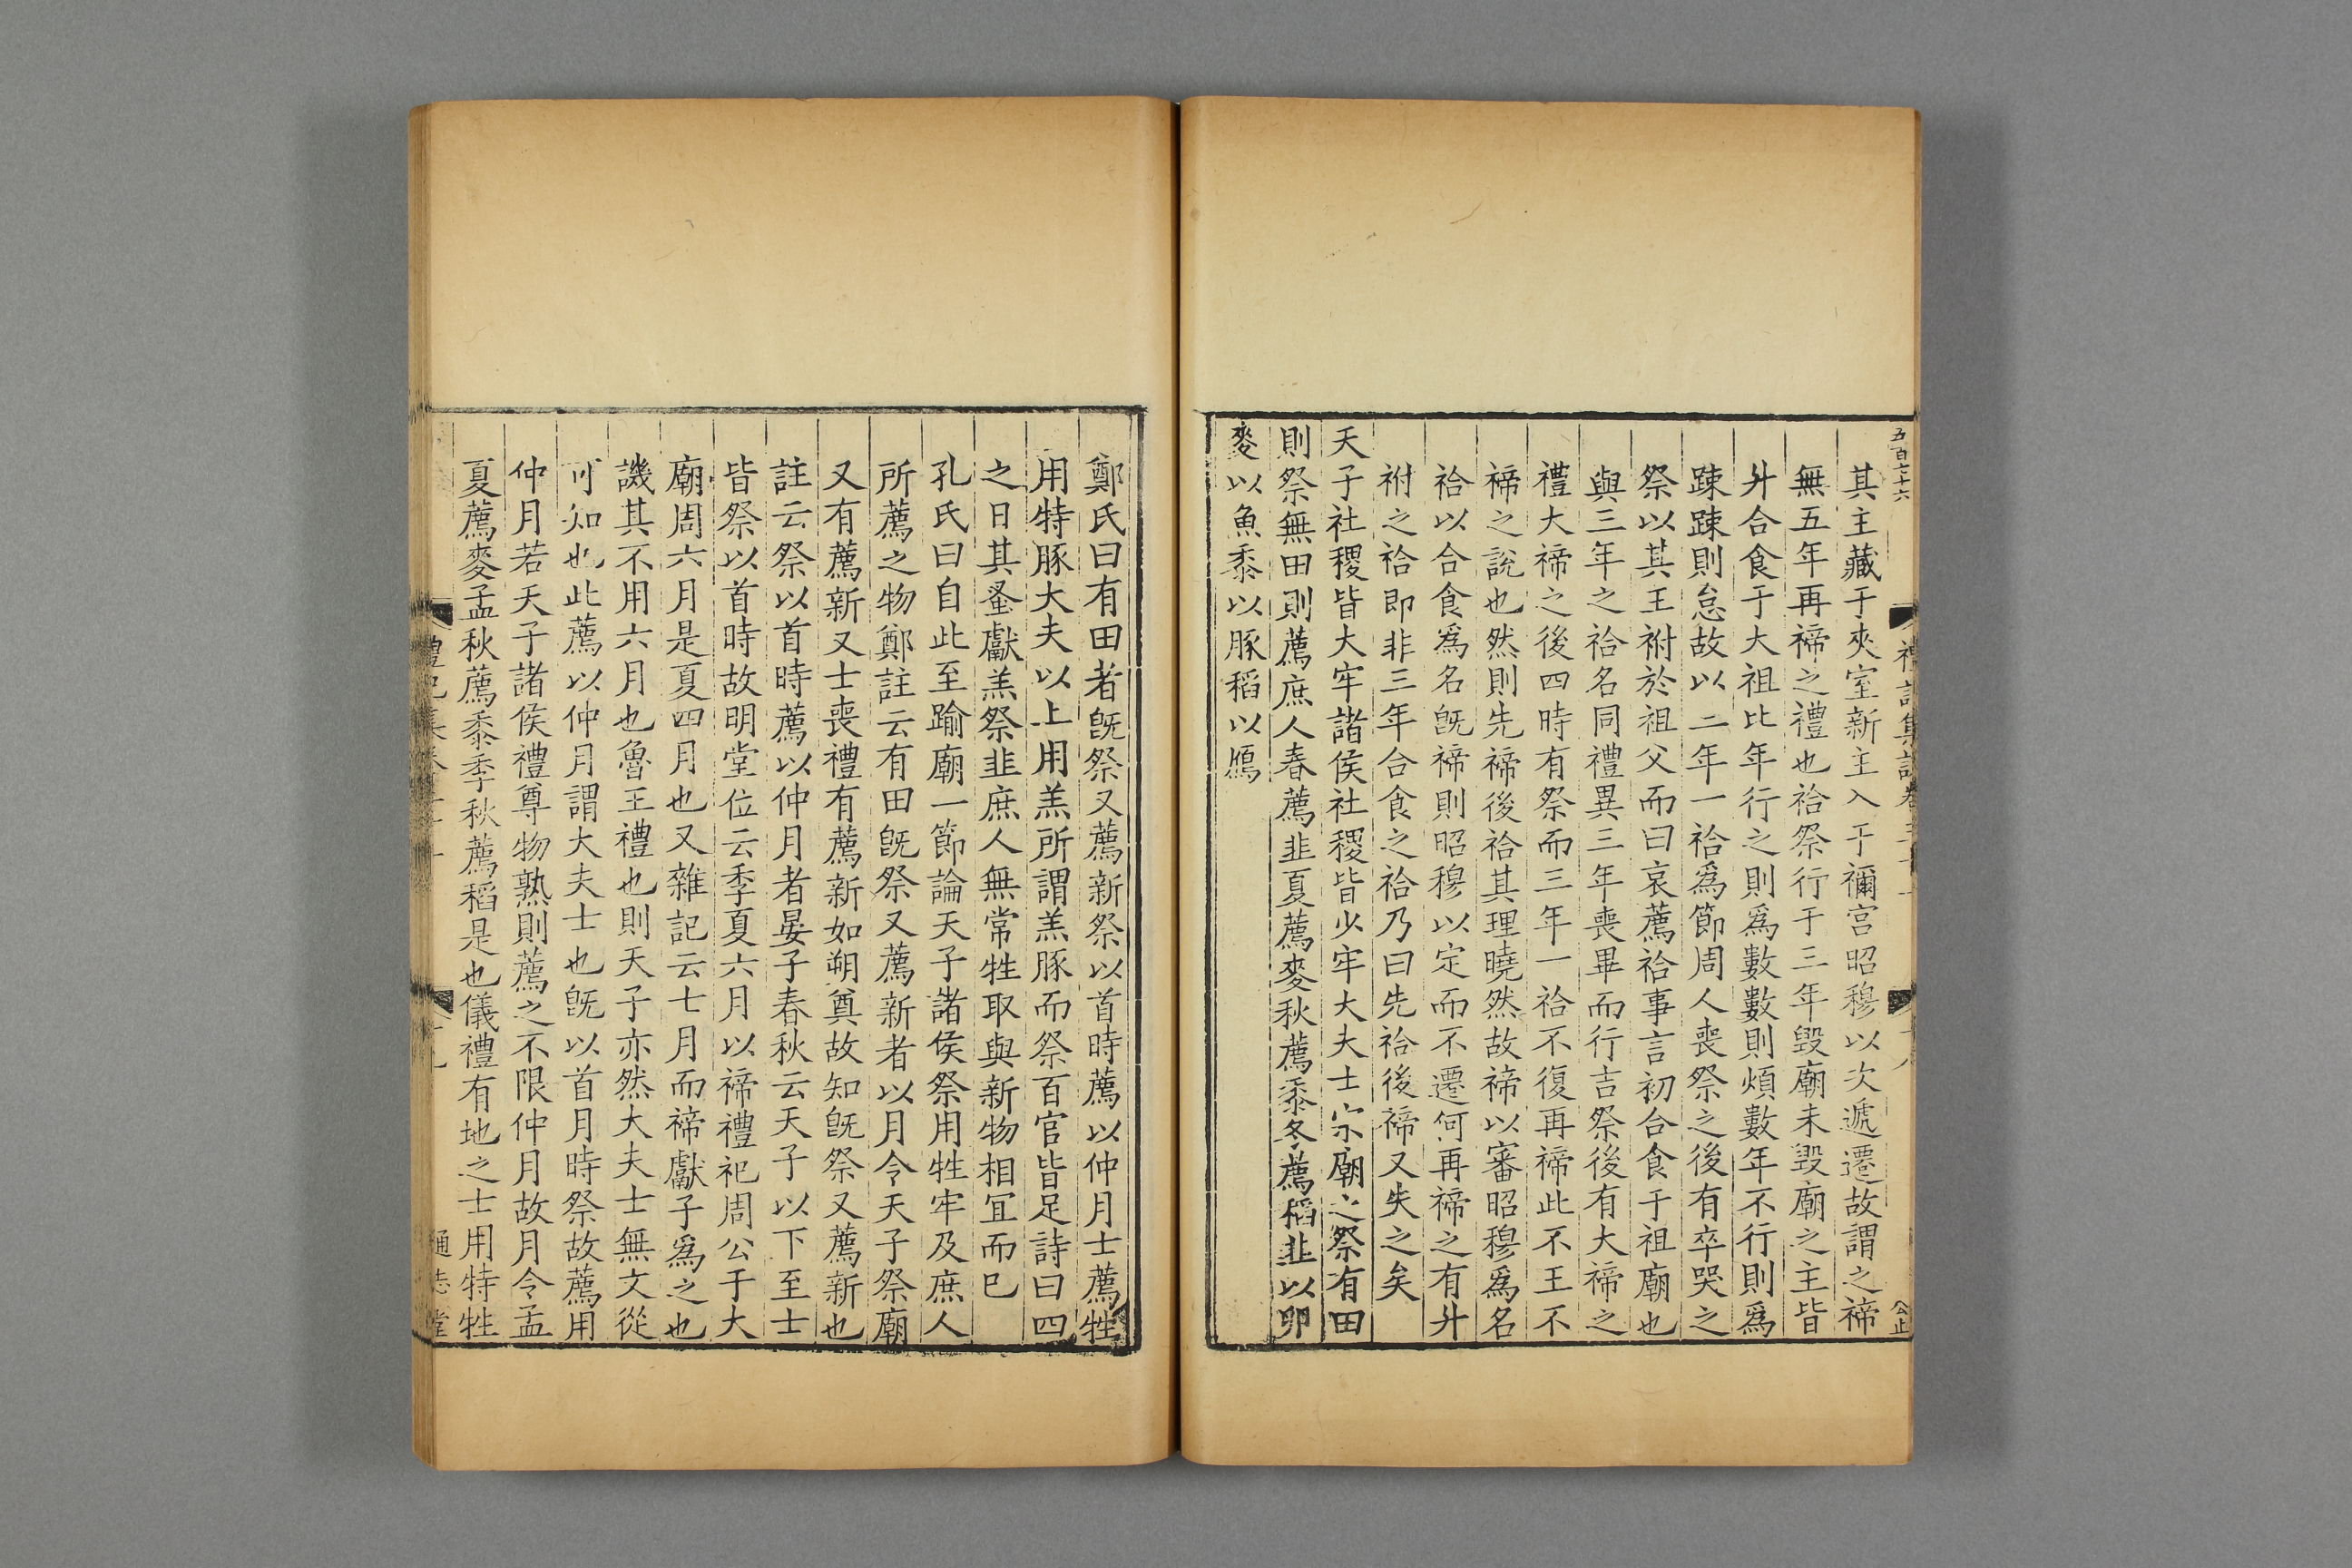 五百七十六
禮記集說卷三十一
十八
公止
其主藏于夾室新主入于禰宮昭穆以次遞遷故謂之禘
無五年再禘之禮也祫祭行于三年毀廟未毀廟之主皆
升合食于大祖比年行之則爲數數則煩數年不行則爲
踈踈則怠故以二年一祫爲節周人喪祭之後有卒哭之
祭以其王祔於祖父而曰哀薦祫事言初合食于祖廟也
與三年之祫名同禮異三年喪畢而行吉祭後有大禘之
禮大禘之後四時有祭而三年一祫不復再禘此不王不
禘之說也然則先禘後祫其理曉然故禘以審昭穆爲名
祫以合食爲名旣禘則昭穆以定而不遷何再禘之有升
祔之祫即非三年合食之祫乃曰先祫後禘又失之矣
天子社稷皆大牢諸侯社稷皆少牢大夫士宗廟之祭有田
則祭無田則薦庶人春薦韭夏薦麥秋薦黍冬薦稻韭以卵
麥以魚黍以豚稻以鴈
鄭氏曰有田者旣祭又薦新祭以首時薦以仲月士薦牲
用特豚大夫以上用羔所謂羔豚而祭百官皆足詩曰四
之日其蚤獻羔祭韭庶人無常牲取與新物相冝而巳
孔氏曰自此至踰廟一節論天子諸侯祭用牲牢及庶人
所薦之物鄭註云有田旣祭又薦新者以月令天子祭廟
又有薦新又士喪禮有薦新如朔奠故知旣祭又薦新也
註云祭以首時薦以仲月者晏子春秋云天子以下至士
皆祭以首時故明堂位云季夏六月以禘禮祀周公于大
廟周六月是夏四月也又雜記云七月而禘獻子爲之也
譏其不用六月也魯王禮也則天子亦然大夫士無文從
可知也此薦以仲月謂大夫士也旣以首月時祭故薦用
仲月若天子諸侯禮尊物熟則薦之不限仲月故月令孟
夏薦麥孟秋薦黍季秋薦稻是也儀禮有地之士用特牲
禮記集
通志堂